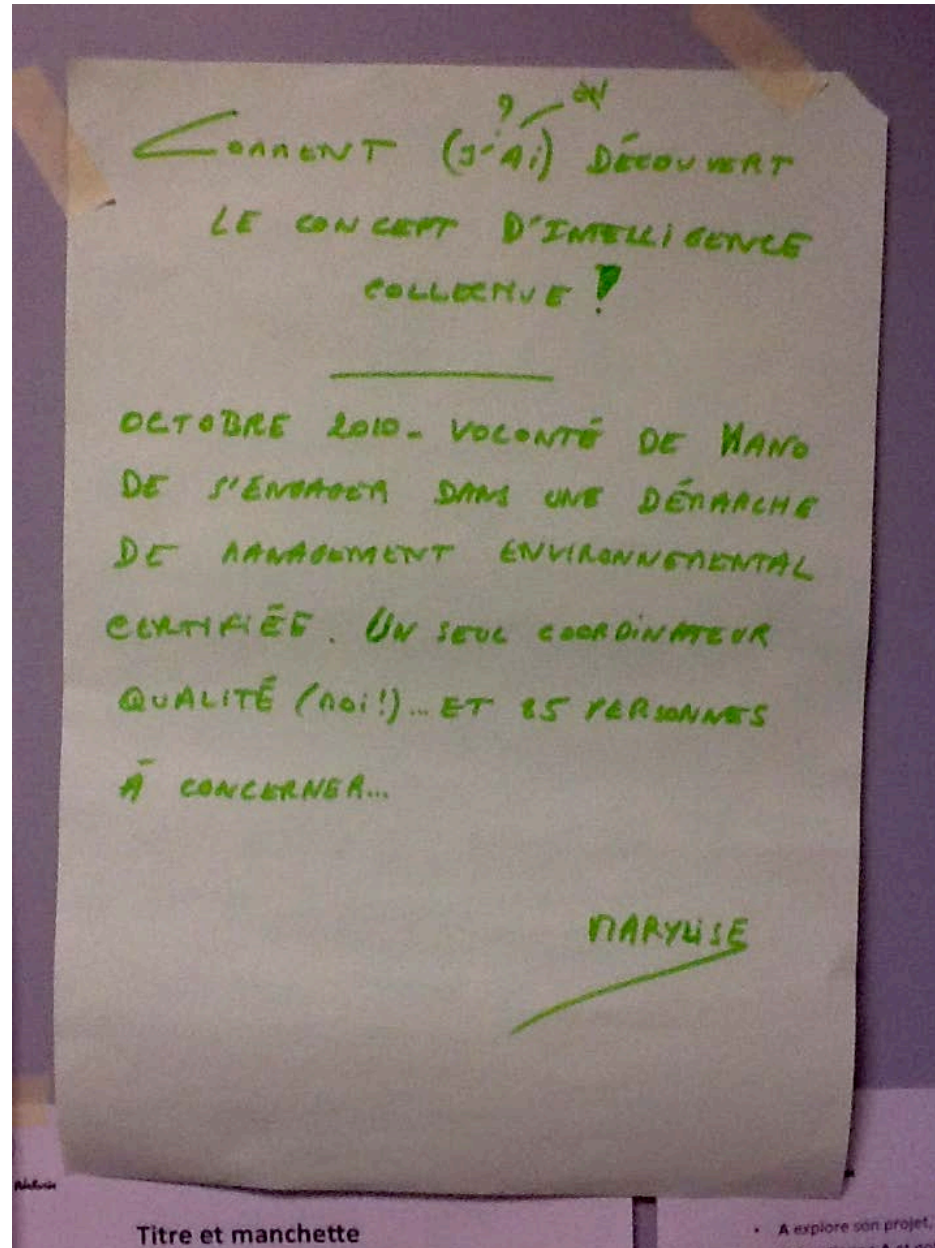 ?
COMMENT (J'AI) DÉCOUVERT
LE CONCEPT D'INTELLIGENCE
COLLECTIVE !
OCTOBRE 2010 - VOLONTÉ DE NANO
DE S'ENGAGER DANS UNE DÉMARCHE
DE MANAGEMENT ENVIRONNEMENTAL
CERTIFIÉE. UN SEUL COORDINATEUR
QUALITÉ (MOI!)... ET 85 PERSONNES
À CONCERNER...
MARYLISE
Titre et manchette
• A explore son projet,